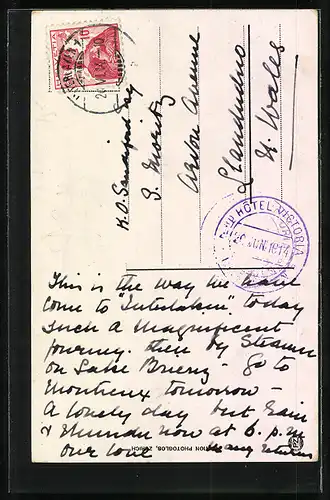 K.O. Sandford Esq
S. Moritz
Avenue
Llandudno
N. Wales
HOTEL VICTORIA
This is the way we have
come to "Interlaken" today
such a magnificent
journey. then by Steamer
on Lake Brienz - go to
Montreux tomorrow -
A lovely day but rain
& thunder now at 6. p.m
our love many
PHOTOGLOB, ZÜRICH